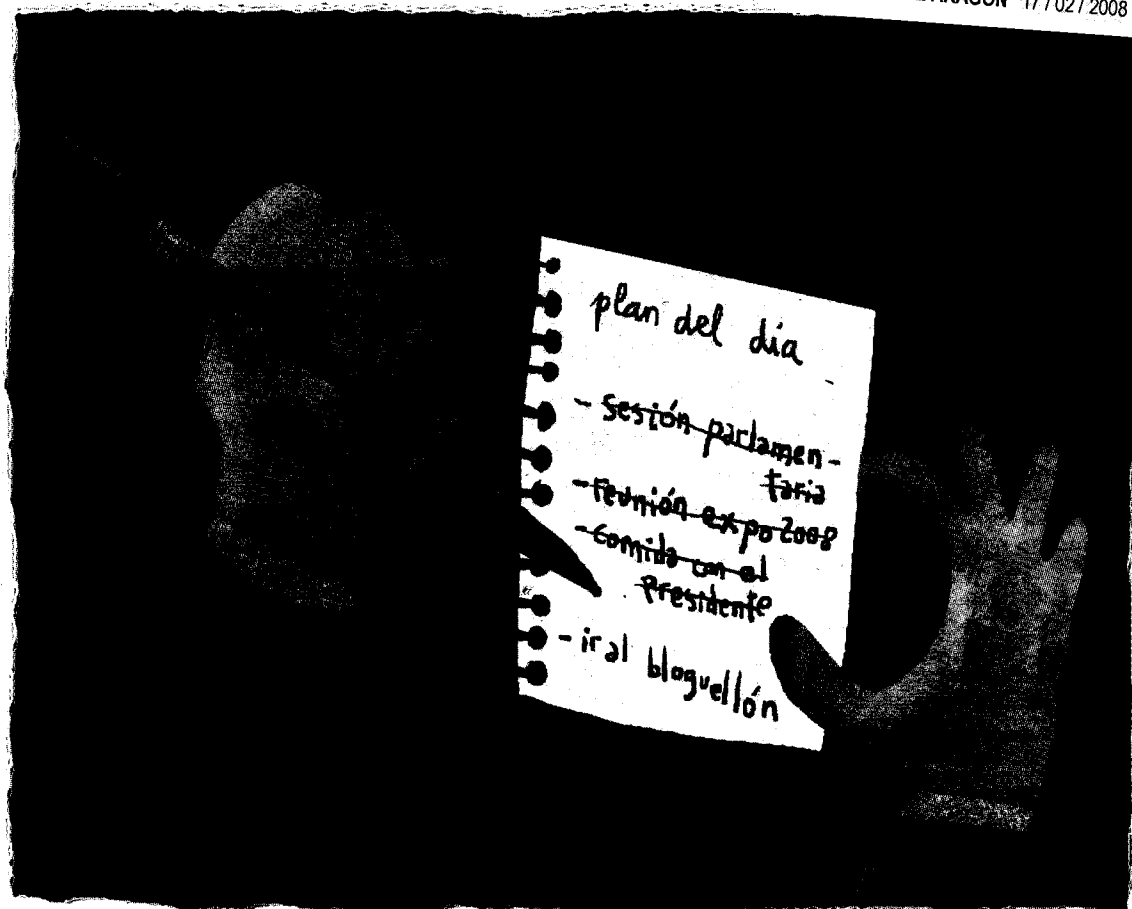 ARAGON 17 / 02 / 2008
plan del día
- Sesión parlamen-
taria
- reunión expo 2008
- comida con el
Presidente
- ir al bloguellón